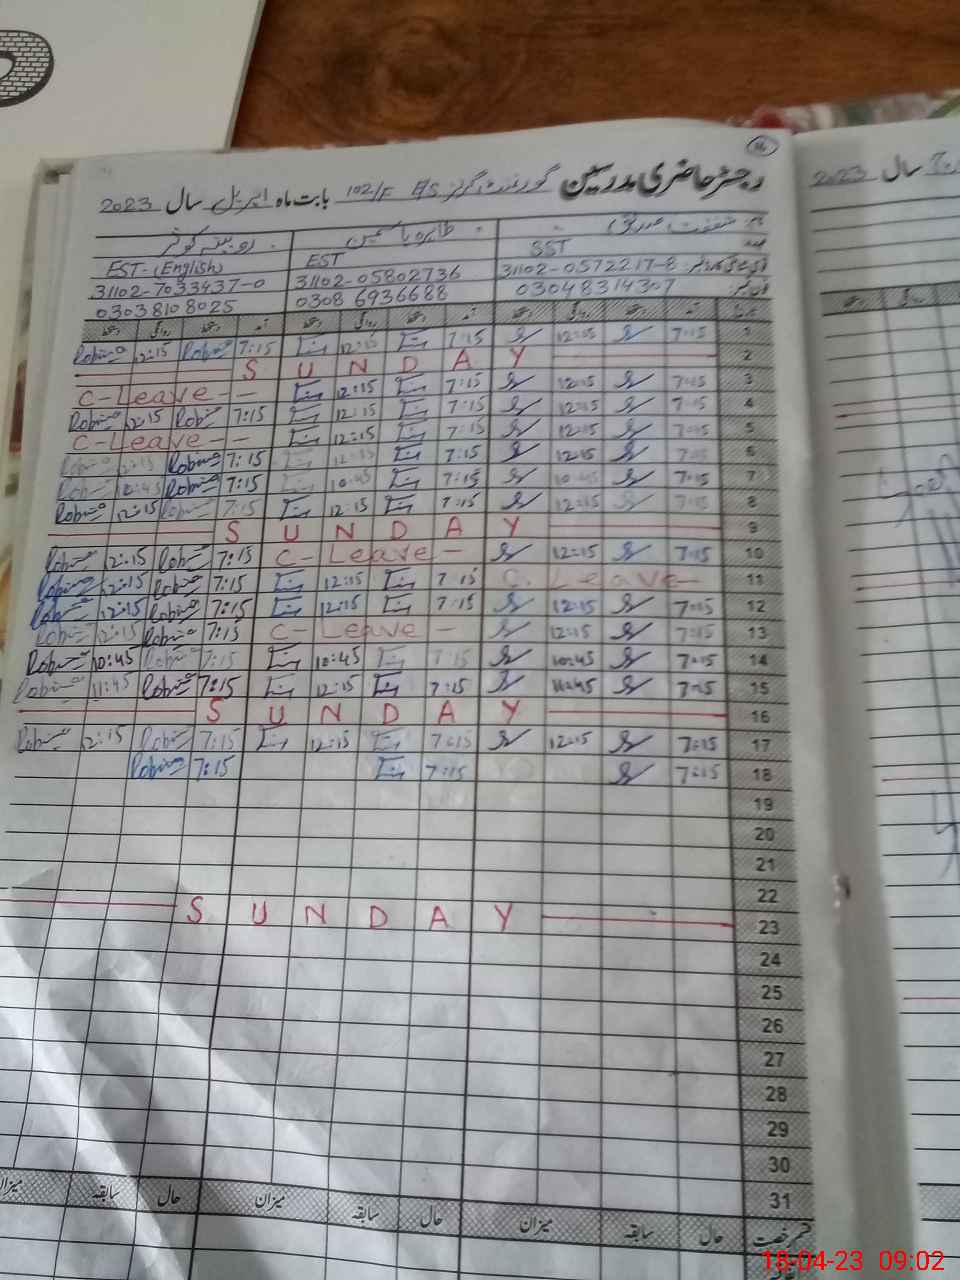 رجسٹر حاضری مدرسین گورنمنٹ گرلز E/S 102/F بابت ماہ اپریل سال 2023
طاہرہ یاسمین روبینہ کوثر
SST EST EST-(English)
31102-0572217-8 31102-05802736 31102-7033437-0
03048314307 0308 6936688 03038108025
1 7:15 12:15 7:15 12:15 7:15 Robina 12:15
2 S U N D A Y
3 7:15 12:15 7:15 12:15 C-Leave--
4 7:15 12:15 7:15 12:15 7:15 12:15
5 7:15 12:15 7:15 12:15 C-Leave--
6 7:15 12:15 7:15 12:15 7:15 12:15
7 7:15 10:45 7:15 10:45 7:15 10:45
8 7:15 12:15 7:15 12:15 7:15 12:15
9 S U N D A Y
10 7:15 12:15 C-Leave- 7:15 12:15
11 C. Leave- 7:15 12:15 7:15 12:15
12 7:15 12:15 7:15 12:15 7:15 12:15
13 7:15 12:15 C-Leave- 7:15 12:15
14 7:15 10:45 7:15 10:45 7:15 10:45
15 7:15 11:45 7:15 12:15 7:15 11:45
16 S U N D A Y
17 7:15 12:15 7:15 12:15 7:15 12:15
18 7:15 7:15 7:15
19
20
21
22
23 S U N D A Y
24
25
26
27
28
29
30
31
حال سابقہ میزان حال سابقہ میزان حال سابقہ میزان
سال 2023
18-04-23 09:02